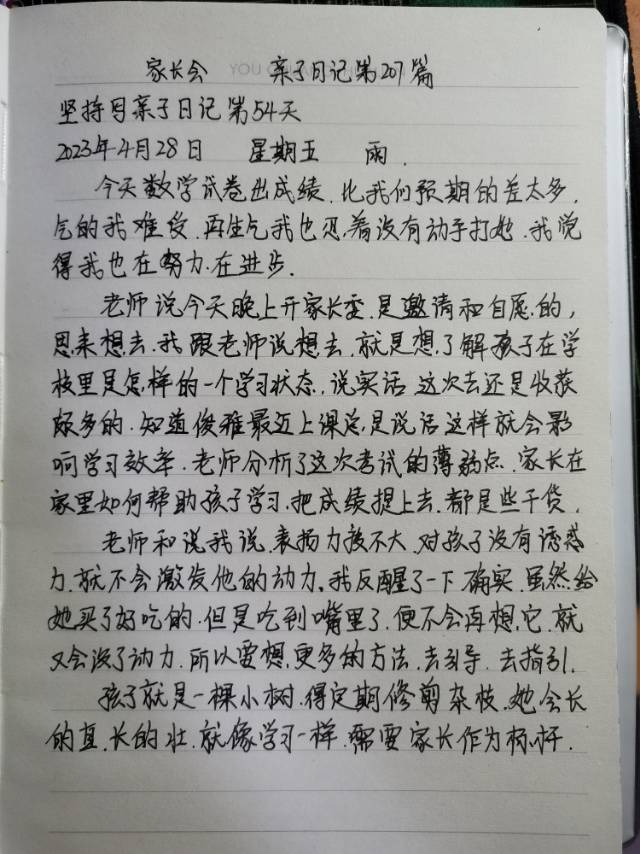 家长会 亲子日记第207篇
坚持写亲子日记第54天
2023年4月28日 星期五 雨.
今天数学试卷出成绩.比我们预期的差太多,
气的我难受.再生气我也忍着没有动手打她.我觉
得我也在努力.在进步.
老师说今天晚上开家长会.是邀请和自愿的,
思来想去.我跟老师说想去.就是想了解孩子在学
校里是怎样的一个学习状态.说实话这次去还是收获
颇多的.知道俊雅最近上课总是说话这样就会影
响学习效率.老师分析了这次考试的薄弱点.家长在
家里如何帮助孩子学习.把成绩提上去.都是些干货.
老师和说我说.表扬力度不大.对孩子没有诱惑
力.就不会激发他的动力.我反醒了一下确实.虽然给
她买了好吃的.但是吃到嘴里了.便不会再想它.就
又会没了动力.所以要想更多的方法.去引导.去指引.
孩子就是一棵小树.得定期修剪杂枝.她会长
的直.长的壮.就像学习一样.需要家长作为标杆.